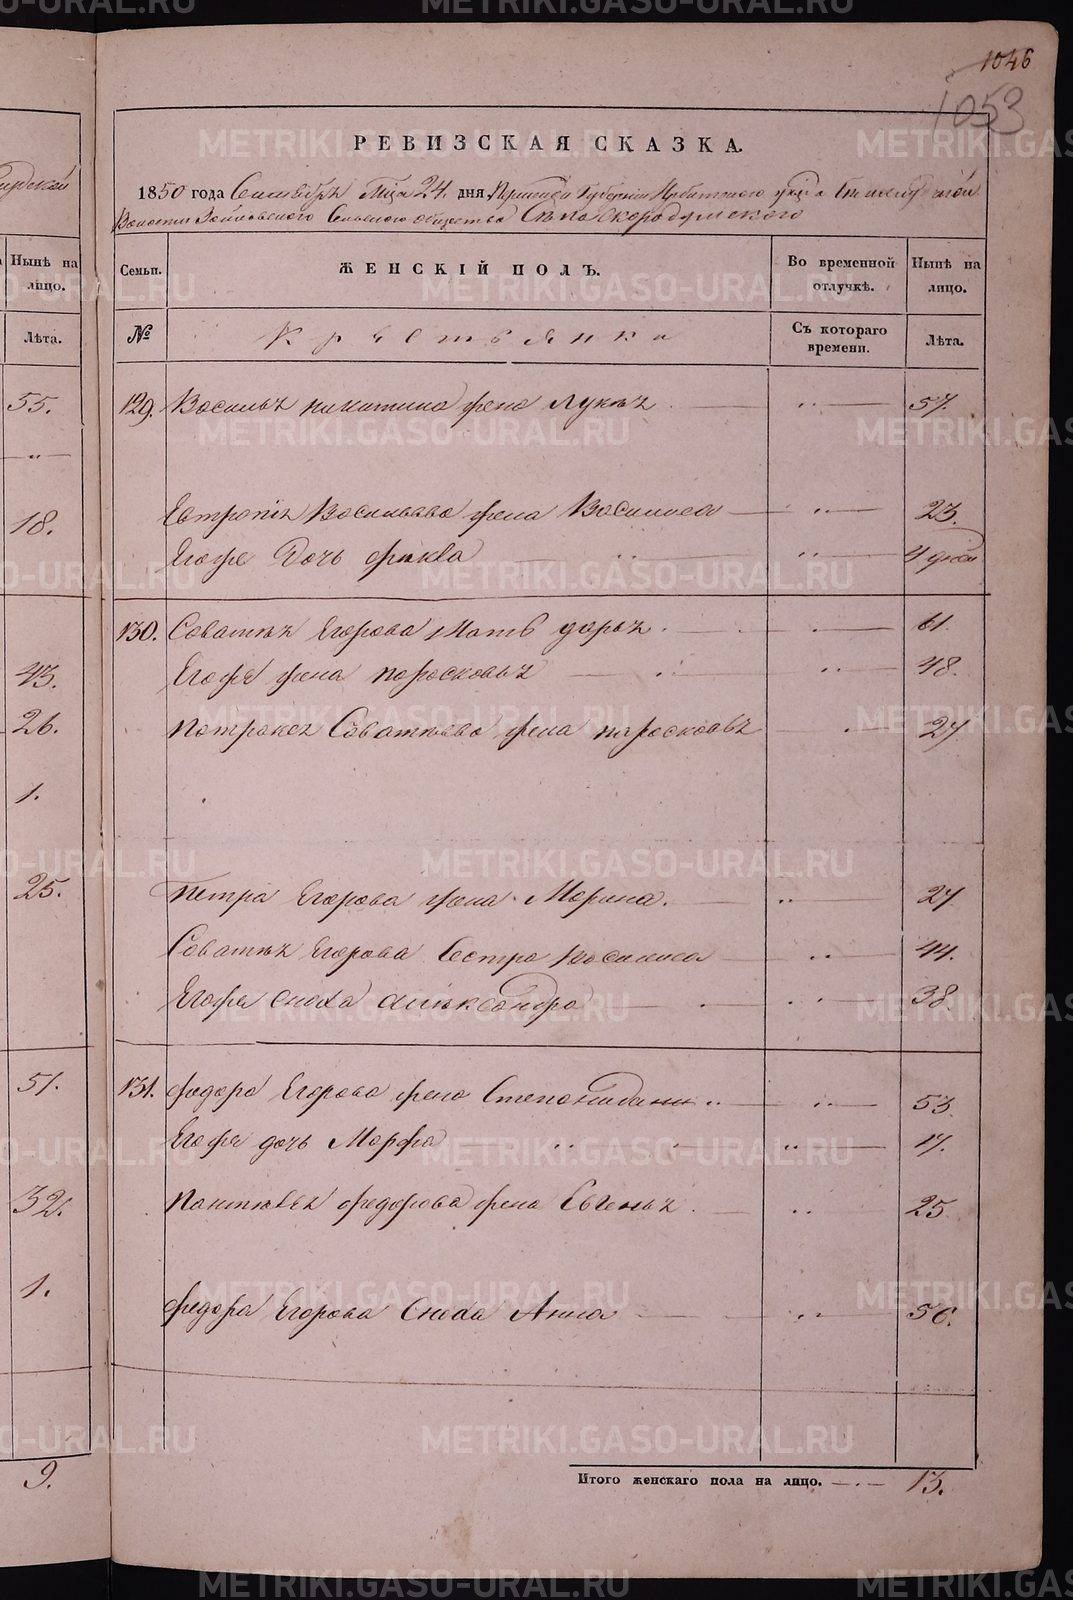 1046
1053
РЕВИЗСКАЯ СКАЗКА.
1850 года Сентября М-ца 24 дня Пермской Губернии Ирбитского уезда
Волости Зайковского Сельского общества Села Скородумского
Семьи. ЖЕНСКІЙ ПОЛЪ. Во временной отлучкѣ. Нынѣ на лицо.
№ Крѣстьянка Съ котораго времени. Лѣта.
129. Василья никитина жена Лукья 57.
Евтропія Васильева жена Василиса 23.
Егоже Дочь фиква 4 дней
130. Саватѣя Егорова Мать дарья 61.
Егожа жена пароскавья 48.
патракея Саватѣева жена пароскавья 27
Петра Егорова жена Марина. 27
Саватѣя Егорова Сестра Василиса 44.
Егожа сноха Алѣксандра 38.
131. федора Егорова жена Степонидани 53
Егожа дочь Марфа 17.
Пантѣлѣя федорова жена Евгенья 25
федора Егорова Сноха Анна 50.
Итого женскаго пола на лицо. 13.
Нынѣ на лицо.
Лѣта.
55.
18.
43.
26.
1.
25.
51.
32.
1.
9.
METRIKI.GASO-URAL.RU